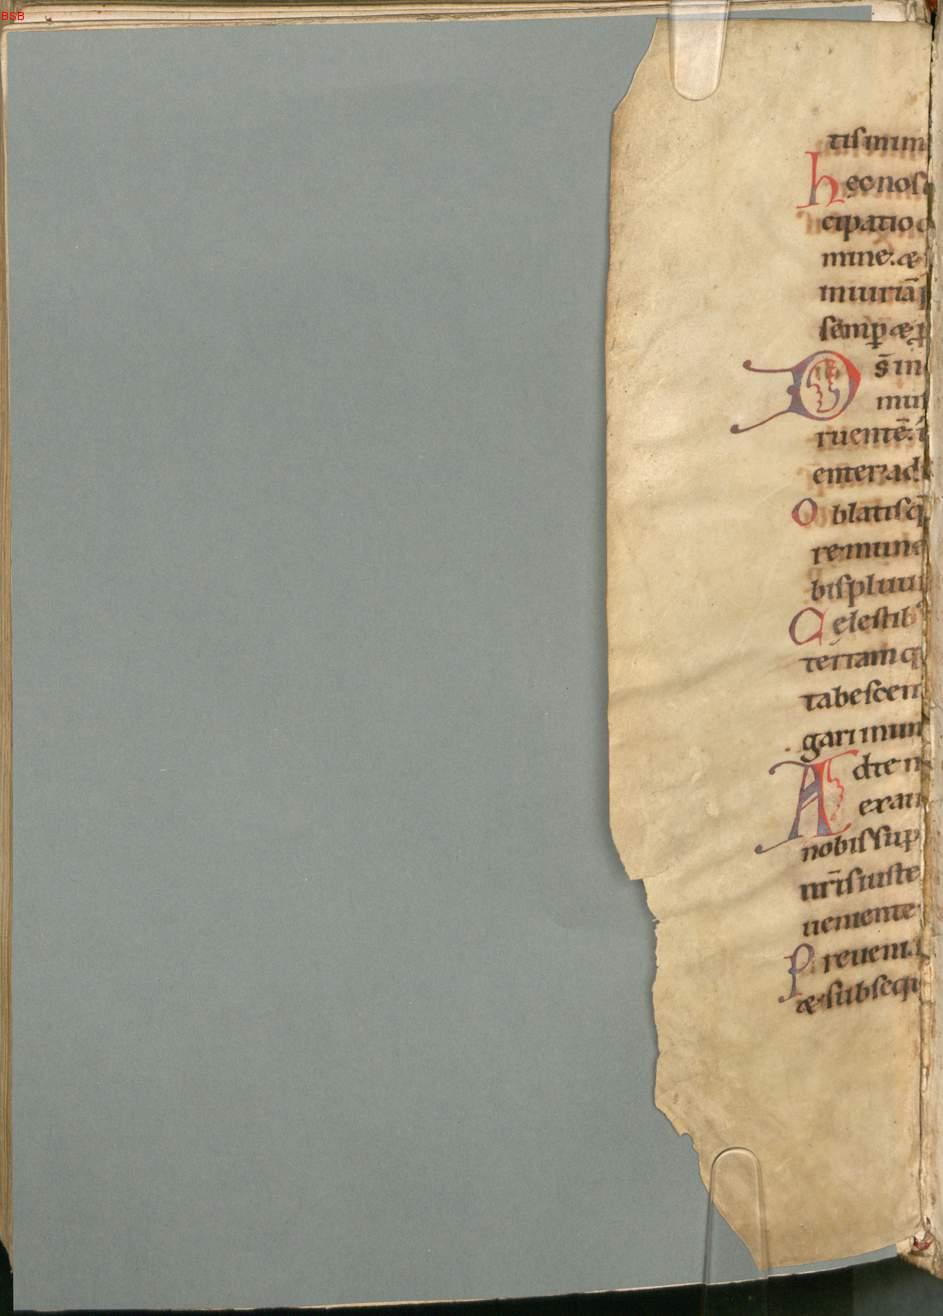 BSB
tisimim
h ęc nos c
cipatio
mine. æ
miuriā p
semp̄ æ p̄
D s̄ in
mus
ruentē. i
enter ad
O blatisq̄
re mune
bis pluui
C ęlestib
terramq
tabescen
gari mun
A diem
exau
nobis sup
nr̄is iuste
uemente
P reueni
æ subsequ